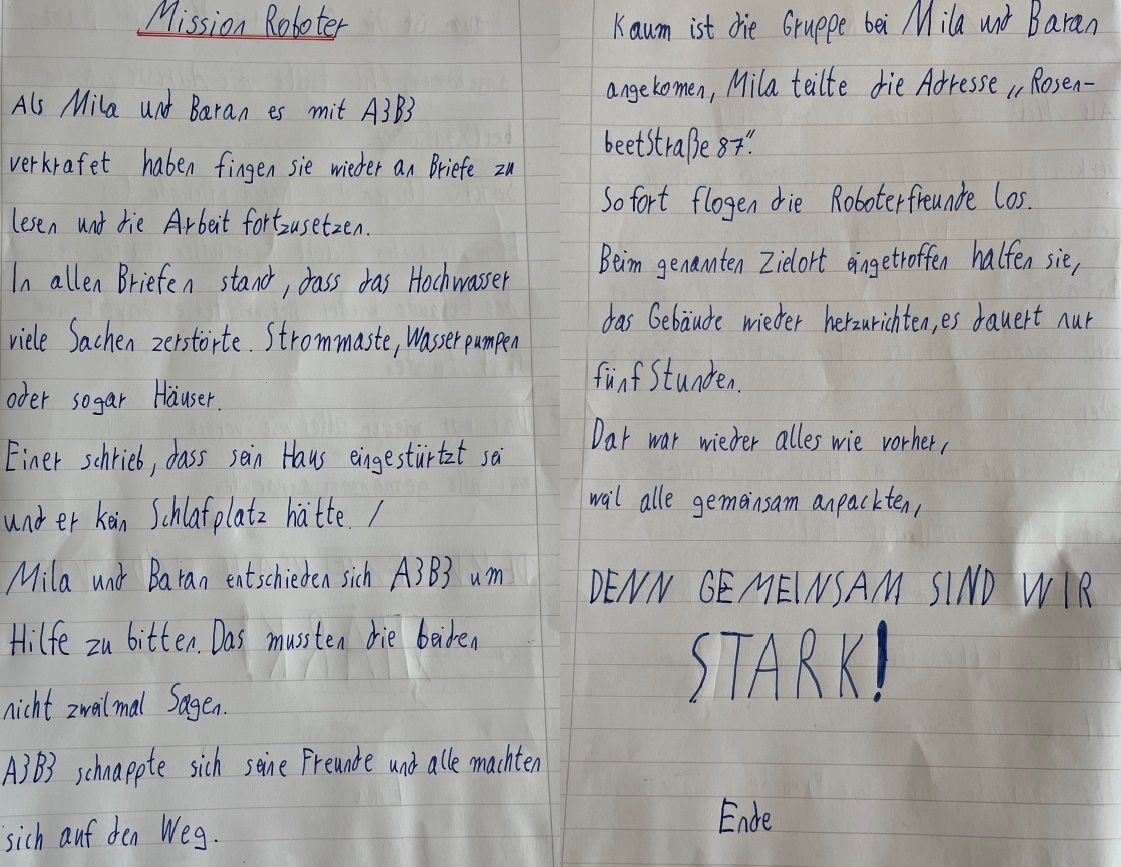 Mission Roboter
Als Mila und Baran es mit A3B3
verkrafet haben fingen sie wieder an Briefe zu
lesen und die Arbeit fortzusetzen.
In allen Briefen stand, dass das Hochwasser
viele Sachen zerstörte. Strommaste, Wasserpumpen
oder sogar Häuser.
Einer schrieb, dass sein Haus eingestürtzt sei
und er kein Schlafplatz hätte. /
Mila und Baran entschieden sich A3B3 um
Hilfe zu bitten. Das mussten die beiden
nicht zweilmal Sagen.
A3B3 schnappte sich seine Freunde und alle machten
sich auf den Weg.
Kaum ist die Gruppe bei Mila und Baran
angekomen, Mila teilte die Adresse „Rosen-
beetStraße 87“.
Sofort flogen die Roboterfreunde los.
Beim genannten Zielort eingetroffen halfen sie,
das Gebäude wieder herzurichten, es dauert nur
fünf Stunden.
Dar war wieder alles wie vorher,
weil alle gemeinsam anpackten,
DENN GEMEINSAM SIND WIR
STARK!
Ende